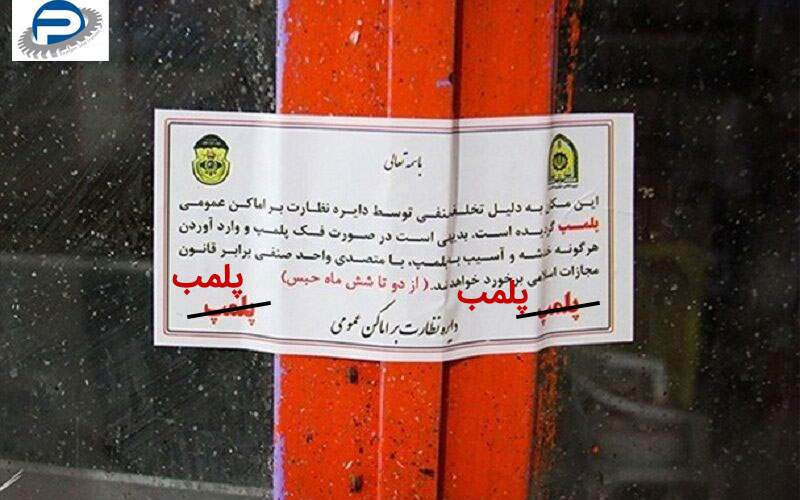 باسمه تعالی
این مکان به دلیل تخلف صنفی توسط دایره نظارت بر اماکن عمومی
پلمب گردیده است. بدیهی است در صورت فک پلمب و وارد آوردن
هرگونه خدشه و آسیب به پلمب، با متصدی واحد صنفی برابر قانون
مجازات اسلامی برخورد خواهد شد. (از دو تا شش ماه حبس)
پلمب پلمب
پلمپ پلمپ
دایره نظارت بر اماکن عمومی